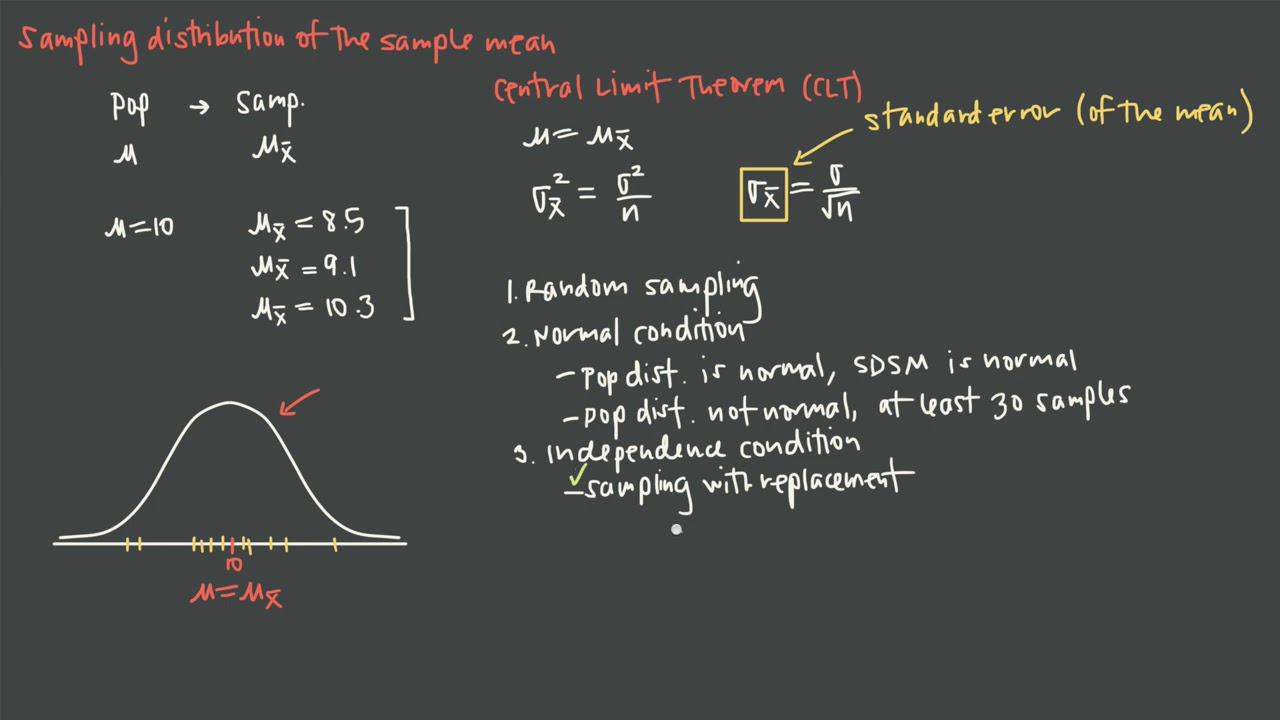 Sampling distribution of the sample mean
Pop → Samp.
μ μx̄
μ=10 μx̄ = 8.5
μx̄ = 9.1
μx̄ = 10.3
10
μ=μx̄
Central Limit Theorem (CLT)
standard error (of the mean)
μ = μx̄
σx̄² = σ²/n σx̄ = σ/√n
1. Random sampling
2. Normal condition
- Pop dist. is normal, SDSM is normal
- pop dist. not normal, at least 30 samples
3. Independence condition
✓
- sampling with replacement